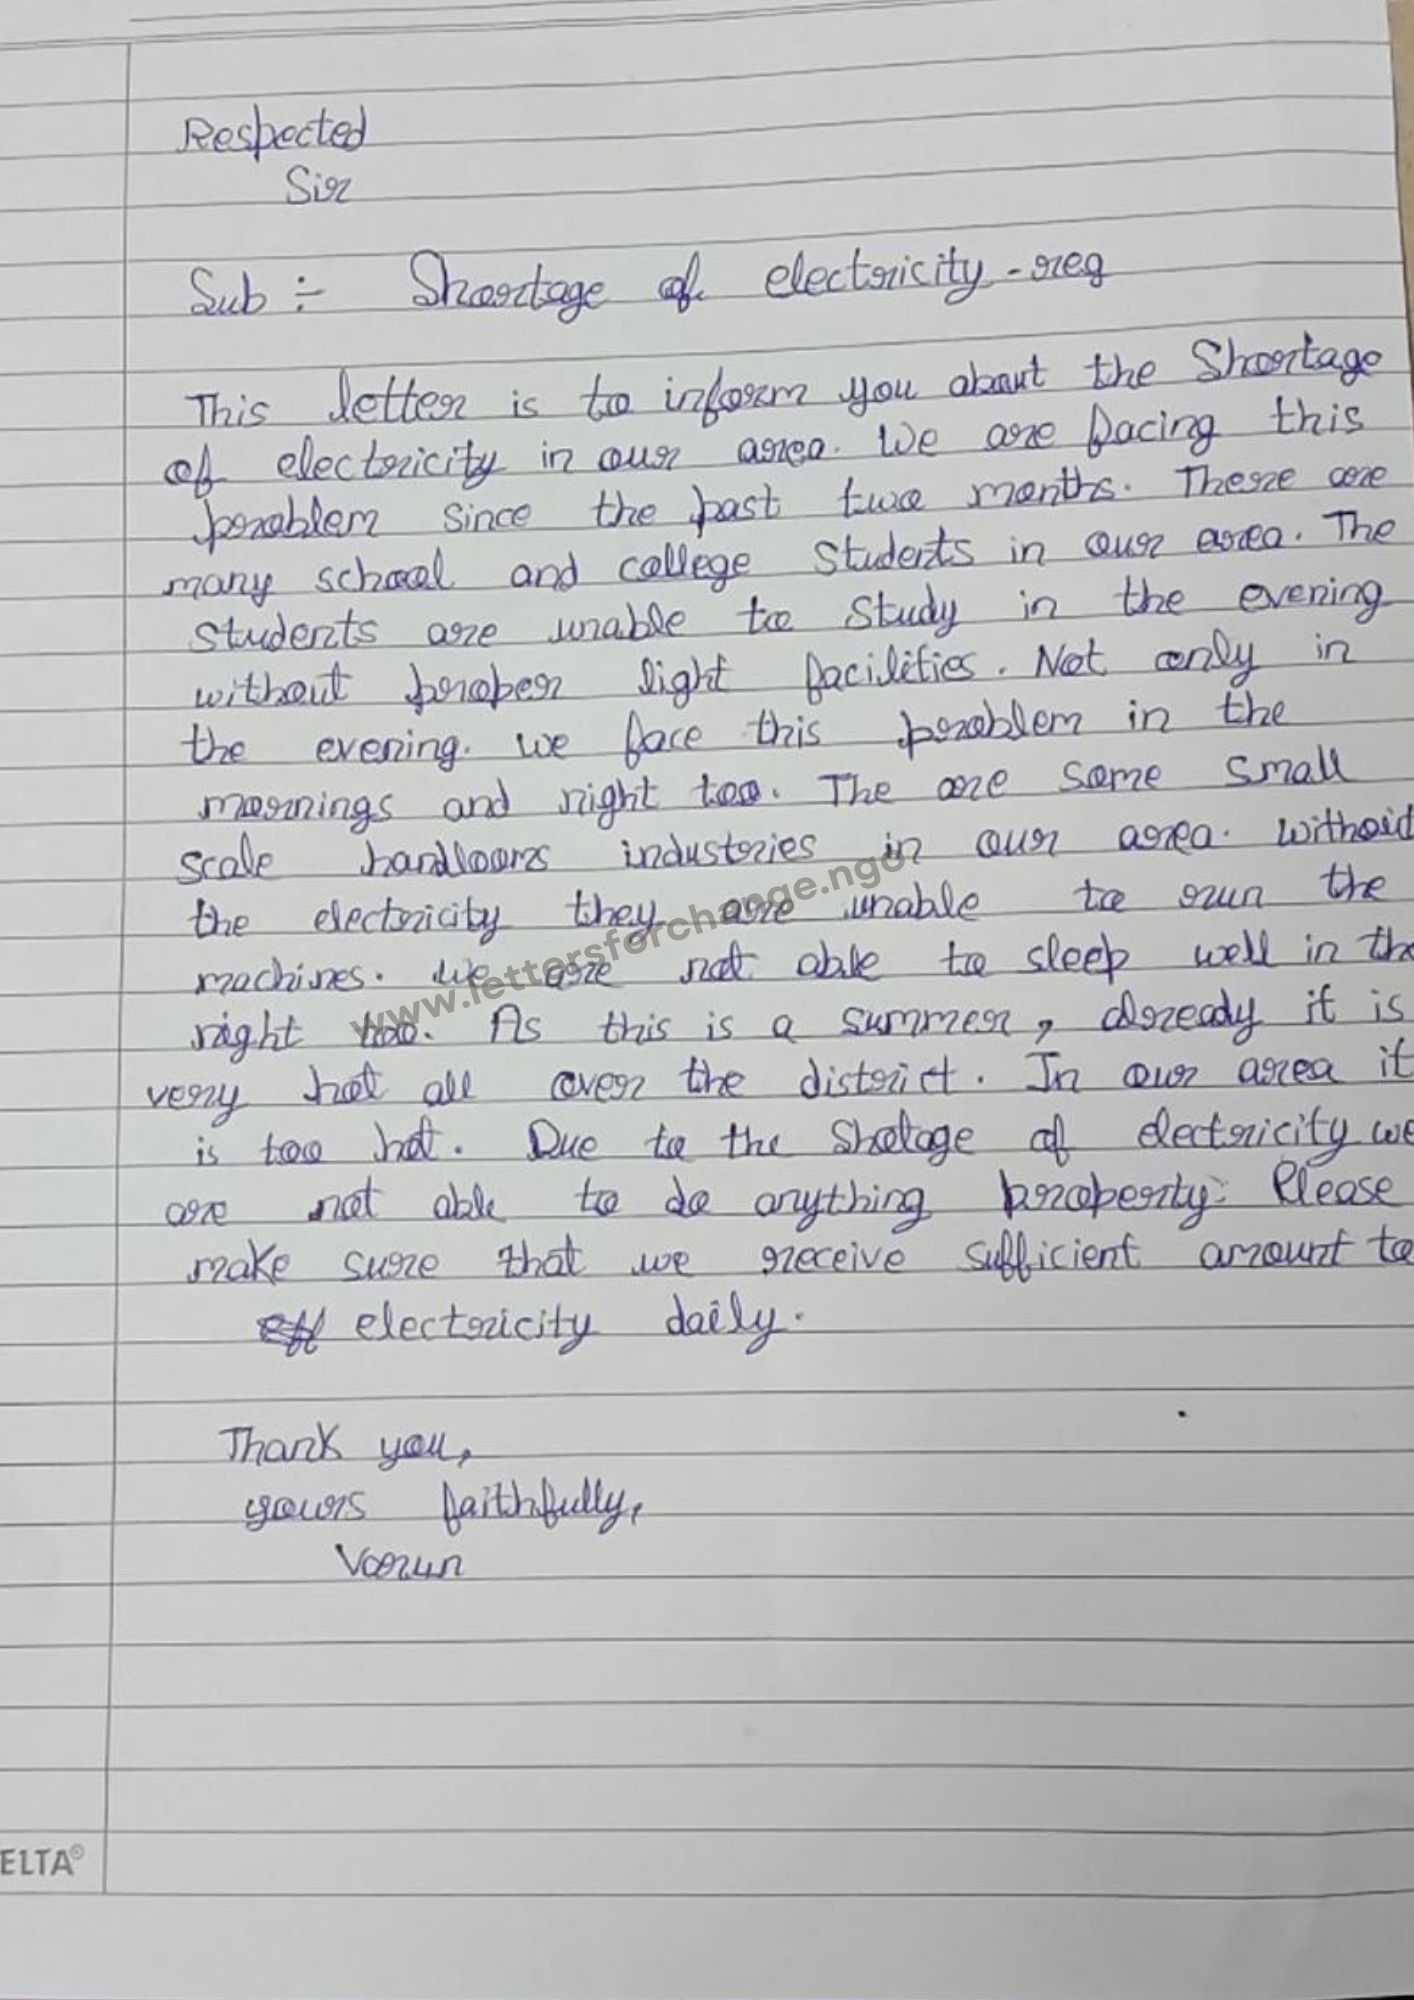 Respected
Sir
Sub :- Shortage of electricity - reg
This letter is to inform you about the Shortage
of electricity in our area. We are facing this
problem since the past two months. There are
many school and college students in our area. The
students are unable to study in the evening
without proper light facilities. Not only in
the evening. we face this problem in the
mornings and night too. The are some small
scale handlooms industries in our area. without
the electricity they are unable to run the
machines. we are not able to sleep well in the
night too. As this is a summer, already it is
very hot all over the district. In our area it
is too hot. Due to the Shotage of electricity we
are not able to do anything properly. Please
make sure that we receive sufficient amount to
electricity daily.
Thank you,
yours faithfully,
Varun
www.lettersforchange.ngo
ELTA®